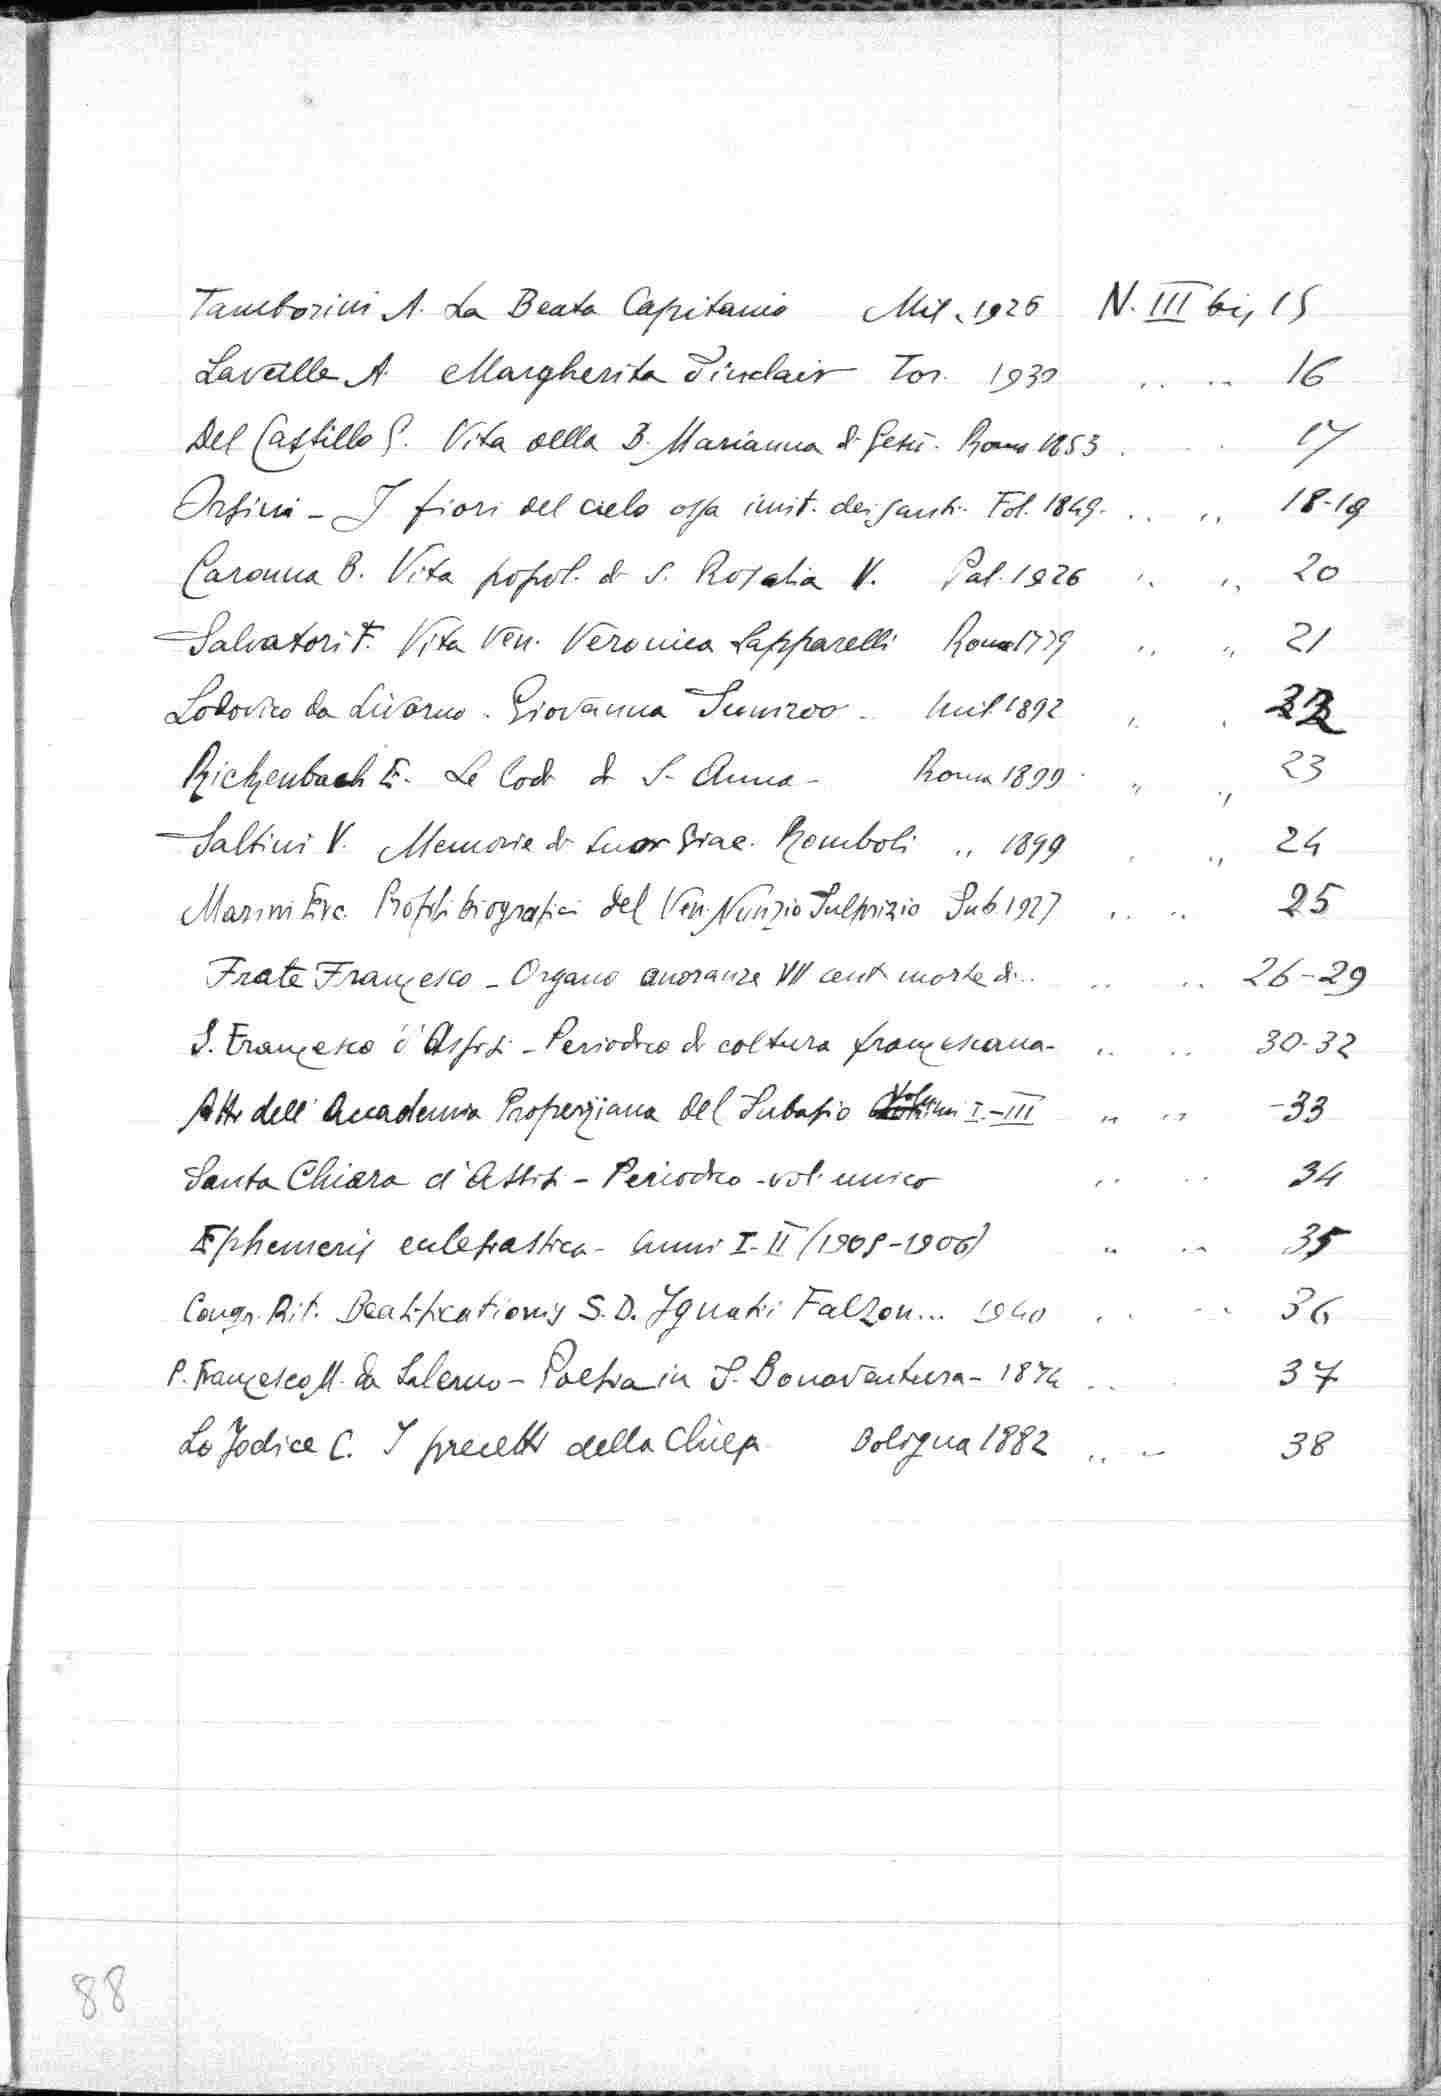 Tamborini A. La Beata Capitanio Mil. 1926 N. III bis 15
Laveille A. Margherita Sinclair Tor. 1930 .. .. 16
Del Castillo G. Vita della B. Marianna di Gesù. Roma 1853 . . 17
Orsini - I fiori del cielo ossia imit. dei santi. Fol. 1849. .. .. 18-19
Caronna B. Vita popol. di S. Rosalia V. Pal. 1926 .. .. 20
Salvatori F. Vita Ven. Veronica Lapparelli Roma 1779 .. .. 21
Lodovico da Livorno. Giovanna Mil. 1892 . . 22
Rickenbach E. Le lodi di S. Anna - Roma 1899 .. .. 23
Saltini V. Memorie di suor Giac. Romboli .. 1899 . .. 24
Marini Profili biografici del Ven. Nunzio Sulprizio Sub. 1927 .. .. 25
Frate Francesco - Organo onoranze VII cent. morte di... .. .. 26-29
S. Francesco d'Assisi - Periodico di coltura francescana - .. .. 30-32
Atti dell'Accademia Properziana del Subasio Volumi I-III .. .. -33
Santa Chiara d'Assisi - Periodico - vol. unico .. .. 34
Ephemeris ecclesiastica - Anni I-II (1905-1906) .. .. 35
Congr. Rit. Beatificationis S. D. Ignatii Falzon... 1940 .. .. 36
P. Francesco M. da Salerno - Poesia in S. Bonaventura - 1874 .. . 37
Lo Jodice C. I precetti della Chiesa Bologna 1882 .. .. 38
88